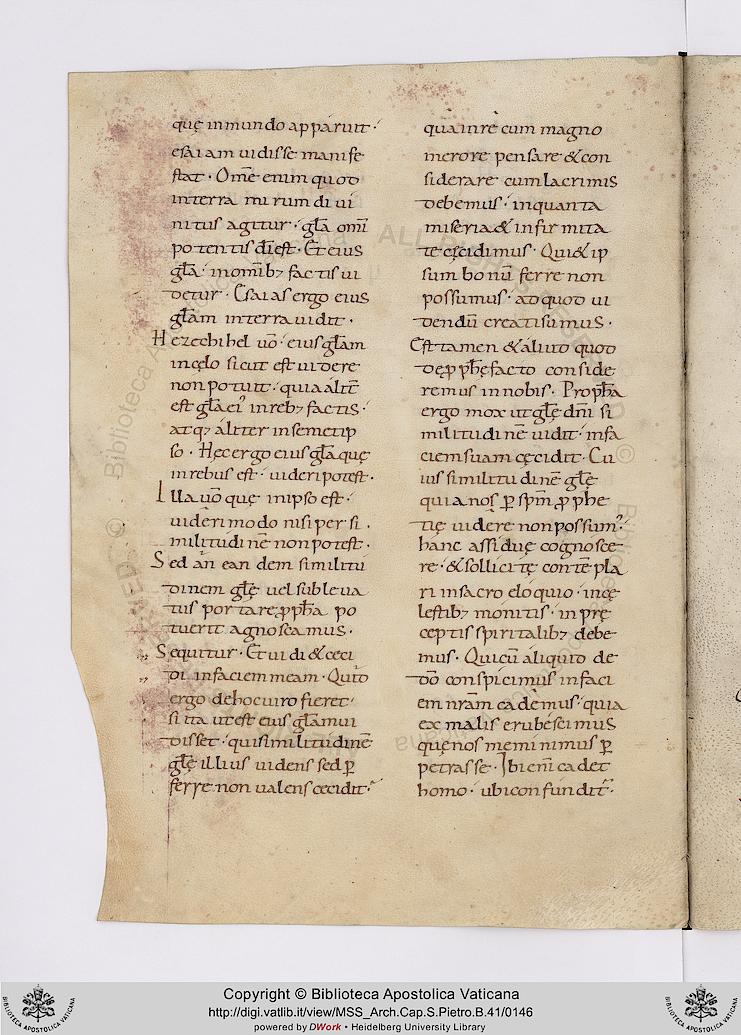 quę inmundo apparuit·
esaiam uidisse manife
stat· Om̄e enim quod
interra mirum diui
nitus agitur· gl̄a om̄i
potentis dī est· Et eius
gl̄a· inomīb; factis ui
detur· Esaias ergo eius
gl̄am interra uidit·
Hezechihel uō· eius gl̄am
incęlo sicut est uidere
non potuit· quia alit̄
est gl̄a ei' inreb; factis·
atq; aliter insemetip
so· Hęc ergo eius gl̄a quę
inrebus est· uideri potest·
Illa uō quę inipso est·
uideri modo nisi per si
militudinē non potest·
Sed an̄ eandem similitu
dinem gl̄ę uel subleua
tus portare ꝓph̄a po
tuerit agnoscamus·
Sequitur· Et uidi & ceci
di infaciem meam· Quid
ergo dehoc uiro fieret·
si ita ut est eius gl̄am ui
disset· qui similitudinē
gl̄ę illius uidens sed ꝑ
ferre non ualens cecidit·
qua in re cum magno
merore pensare & con
siderare cum lacrimis
debemus· inquanta
miseria & infirmita
te cęcidimus· Qui & ip
sum bonū ferre non
possumus· ad quod ui
dendū creati sumus·
Est tamen & aliud quod
dę ꝓph̄ę facto conside
remus innobis· Proph̄a
ergo mox ut gl̄ę dn̄i si
militudinē uidit· infa
ciem suam cęcidit· Cu
ius similitudinē gl̄ę
quia nos ꝑ sp̄m ꝓphe
tię uidere non possum'·
hanc assiduę cognosce
re· & sollicitę contēpla
ri in sacro eloquio· incę
lestib; monitis· inprę
ceptis spiritalib; debe
mus· Qui cū aliquid de
dō conspicimus infaci
em nr̄am cademus· quia
ex malis erubescimus
quę nos meminimus ꝑ
petrasse· Ibi eni cadet
homo· ubi confundit̄·
Copyright © Biblioteca Apostolica Vaticana
http://digi.vatlib.it/view/MSS_Arch.Cap.S.Pietro.B.41/0146
powered by DWork • Heidelberg University Library